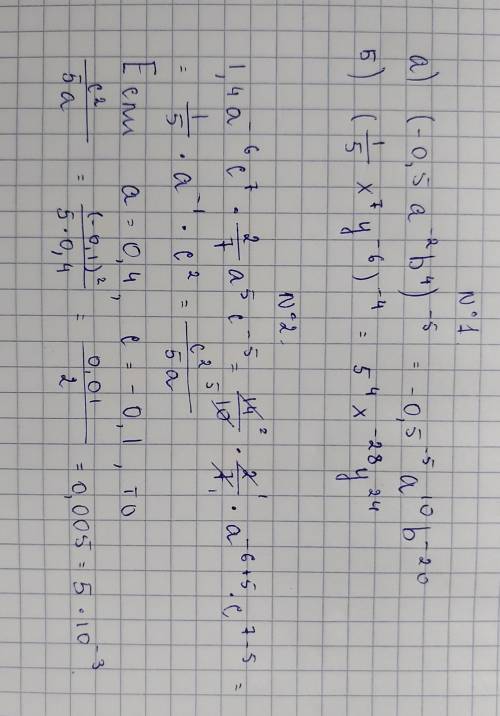 №1
а) (-0,5 a⁻²b⁴)⁻⁵ = -0,5⁻⁵a¹⁰b⁻²⁰
б) (1/5 x⁷y⁻⁶)⁻⁴ = 5⁴x⁻²⁸y²⁴
№2.
1,4a⁻⁶c⁷ · 2/7 a⁵c⁻⁵ = 14²/10⁵ · 2¹/7¹ · a⁻⁶⁺⁵ · c⁷⁻⁵ =
= 1/5 · a⁻¹ · c² = c²/5a
Если a = 0,4, c = -0,1, то
c²/5a = (-0,1)²/5·0,4 = 0,01/2 = 0,005 = 5 · 10⁻³